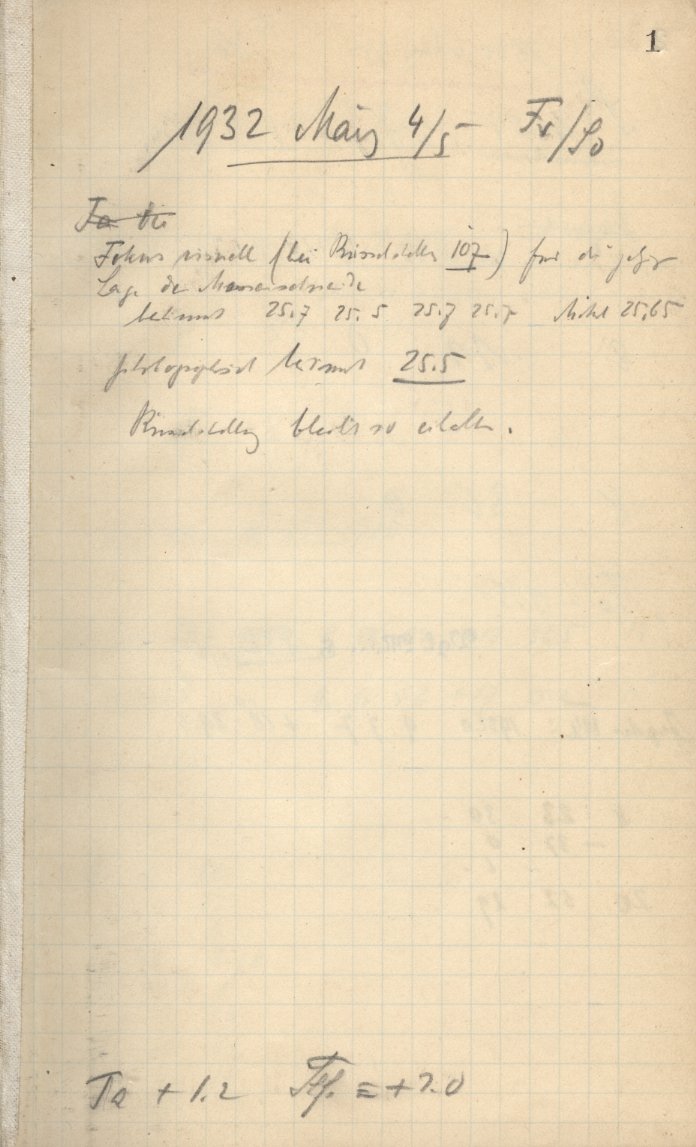 1
1932 März 4/5 Fr/So
Ta bei
Fokus visuell (bei Ringstellung 107) für die jetzige
Lage der
bestimmt 25.7 25.5 25.7 25.7 Mittel 25,65
photographisch bestimmt 25.5
bleibt so erhalten.
Ta + 1.2 = +7.0